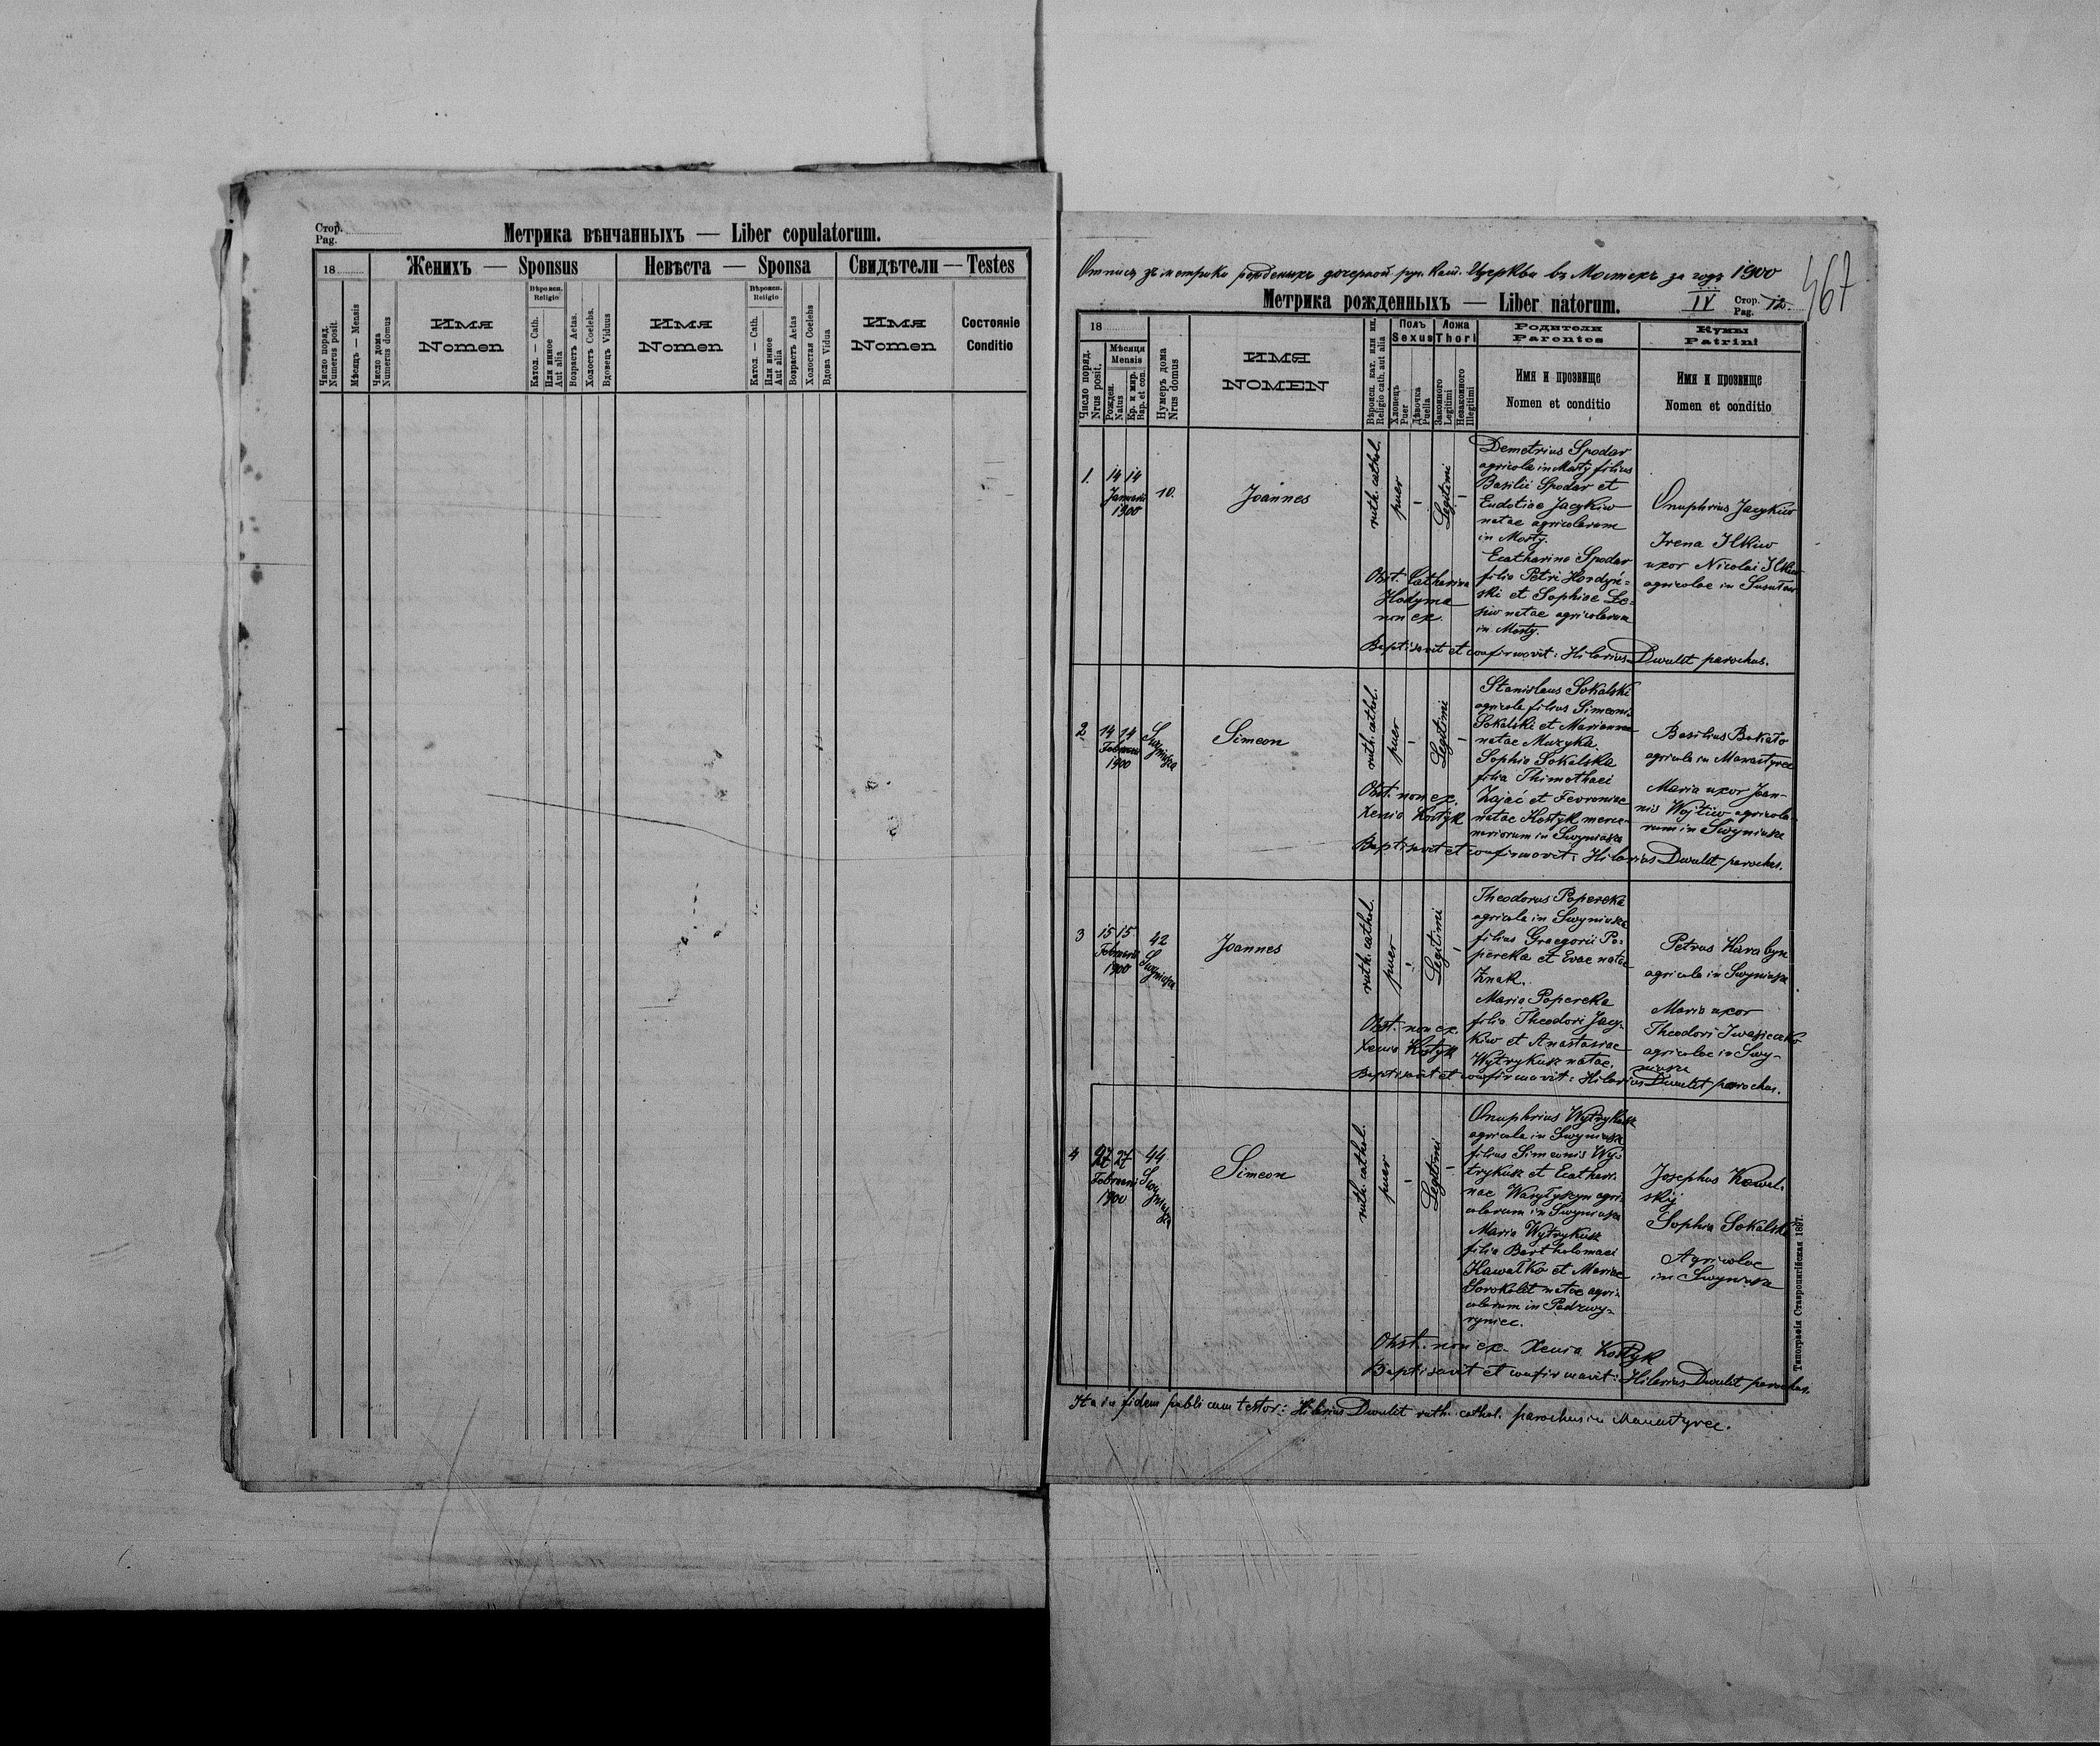 Стор.
Pag.
Метрика вѣнчанныхъ — Liber copulatorum.
18
Женихъ — Sponsus
Невѣста — Sponsa
Свидѣтели — Testes
Число поряд.
Numerus posit.
Мѣсяцъ — Mensis
Число дома
Numerus domus
Имя
Nomen
Вѣроисп.
Religio
Катол. — Cath.
Или иное
Aut alia
Возрастъ Aetas.
Холостъ Coelebs.
Вдовецъ Viduus
Имя
Nomen
Вѣроисп.
Religio
Катол. — Cath.
Или иное
Aut alia
Возрастъ Aetas
Холостая Coelebs
Вдова Vidua
Имя
Nomen
Состояніе
Conditio
Отпись зъ метрики рожденихъ дочерной рус. кат. Церкви въ Мостахъ за годъ 1900
467
Метрика рожденныхъ — Liber natorum.
IV
Стор.
Pag. 12.
18
Число поряд.
Nrus posit.
Мѣсяця
Mensis
Рожден.
Natus
Кр. и мир.
Bap. et con.
Нумеръ дома
Nrus domus
ИМЯ
NOMEN
Вѣроисп. кат. или ин.
Religio cath. aut alia
Полъ
Sexus
Хлопецъ
Puer
Дѣвочка
Puella
Ложа
Thori
Законного
Legitimi
Незаконного
Illegitimi
Родители
Parentes
Имя и прозвище
Nomen et conditio
Кумы
Patrini
Имя и прозвище
Nomen et conditio
1.
14 14
Januarii
1900
10.
Joannes
ruth. cathol.
puer
Legitimi
Demetrius Spodar
agricola in Mosty filius
Basilii Spodar et
Eudoxiae Jacykiw
natae agricolarum
in Mosty.
Ecatharina Spodar
filia Petri Hordyń-
ski et Sophiae Le-
siw natae agricolarum
in Mosty.
Onuphrius Jacykiw
Irena Ilkiw
uxor Nicolai Ilkiw
agricolae in
Obst. Catharina
Hodyma
non ex.
Baptisavit et confirmavit: Hilarius Dwulit parochus.
2
14 14
Februarii
1900
Swyniusza
Simeon
ruth. cathol.
puer
Legitimi
Stanislaus Sokalski
agricola filius Simeonis
Sokalski et Mariannae
natae Muzyka.
Sophia Sokalska
filia Thimothaei
Zając et Fevroniae
natae Kostyk merce-
nariorum in Swyniusza
Basilius
agricola in Manastyrec
Maria uxor Joan-
nis Wojtiw agricola-
rum in Swyniusza
Obst. non ex.
Xenia Kostyk
Baptisavit et confirmavit: Hilarius Dwulit parochus.
3
15 15
Februarii
1900
42
Swyniusza
Joannes
ruth. cathol.
puer
Legitimi
Theodorus Popereka
agricola in Swyniusza
filius Graegorii Po-
pereka et Evae natae
Znak.
Maria Popereka
filia Theodori Jacy-
kiw et Anastasiae
Wytrykusz natae.
Petrus Karabyn
agricola in Swyniusza
Maria uxor
Theodori Iwasieczko
agricolae in Swy-
niusza
Obst. non ex.
Xenia Kostyk
Baptisavit et confirmavit: Hilarius Dwulit parochus.
4
27 27
Februarii
1900
44
Swyniusza
Simeon
ruth. cathol.
puer
Legitimi
Onuphrius Wytrykusz
agricola in Swyniusza
filius Simeonis Wy-
trykusz et Ecathari-
nae Wasyłyszyn agri-
colarum in Swyniusza
Maria Wytrykusz
filia Bartholomaei
Kawałko et Mariae
natae agri-
colarum in Podzwy-
ryniec.
Josephus Kowal-
skij
Sophia Sokalska
Agricolae
in Swyniusza
Obst. non ex. Xenia Kostyk
Baptisavit et confirmavit: Hilarius Dwulit parochus.
Ita in fidem publicam testor: Hilarius Dwulit ruth. cathol. parochus in Manastyrec.
Типографія Ставропигійская 1897.